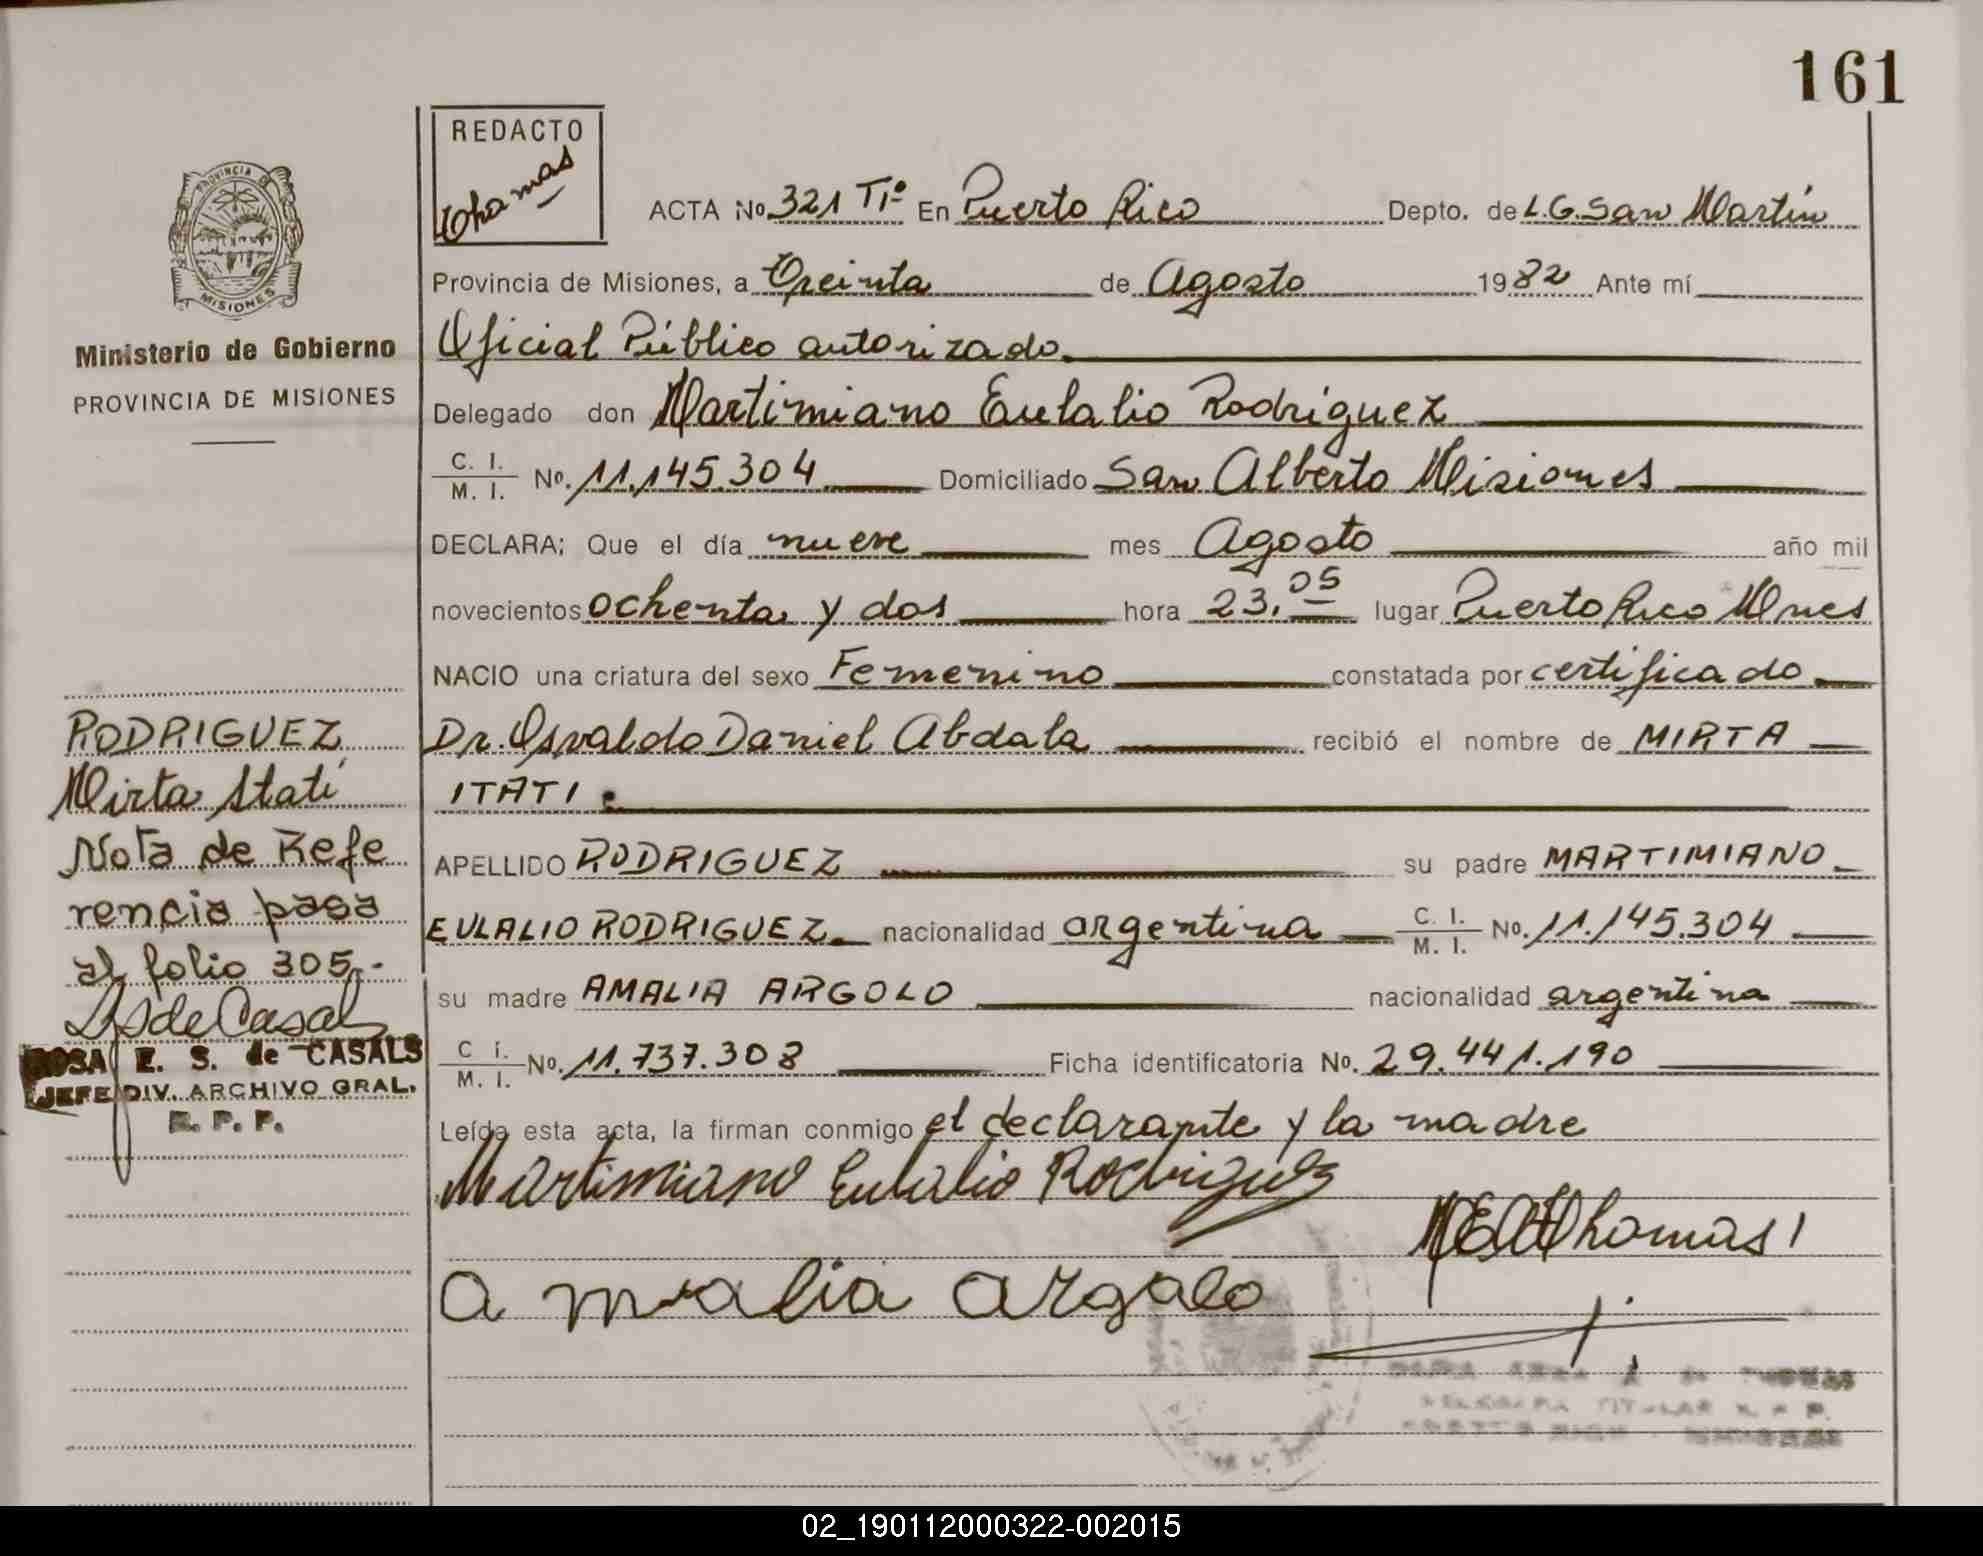 161
REDACTO
Thomas
ACTA No. 321 Tº En Puerto Rico Depto. de L.G. San Martín
PROVINCIA DE
MISIONES
Provincia de Misiones, a Treinta de Agosto 1982 Ante mí
Ministerio de Gobierno
PROVINCIA DE MISIONES
Oficial Público autorizado.
Delegado don Martimiano Eulalio Rodríguez
C. I.
M. I. No. 11.145.304 Domiciliado San Alberto Misiones
DECLARA; Que el día nueve mes Agosto año mil
novecientos ochenta y dos hora 23.05 lugar Puerto Rico Mnes
NACIO una criatura del sexo Femenino constatada por certificado
Dr. Osvaldo Daniel Abdala recibió el nombre de MIRTA
ITATI
APELLIDO RODRIGUEZ su padre MARTIMIANO
EULALIO RODRIGUEZ nacionalidad argentina C. I. M. I. No. 11.145.304
su madre AMALIA ARGOLO nacionalidad argentina
C I. M. I. No. 11.737.308 Ficha identificatoria No. 29.441.190
Leída esta acta, la firman conmigo el declarante y la madre
Martimiano Eulalio Rodriguez
Thomas
Amalia argalo
RODRIGUEZ
Mirta Itatí
Nota de Refe
rencia pasa
al folio 305.-
de Casal
ROSA E. S. de CASALS
JEFE DIV. ARCHIVO GRAL.
R. P. P.
02_190112000322-002015